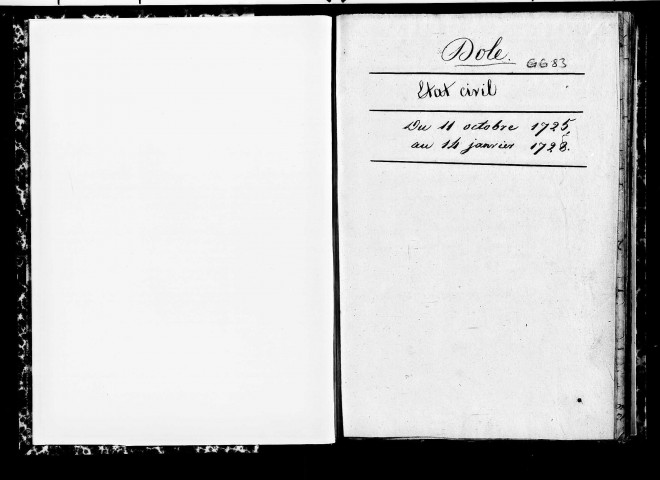 Dole. GG83
Etat civil
Du 11 octobre 1725,
au 14 janvier 1728.